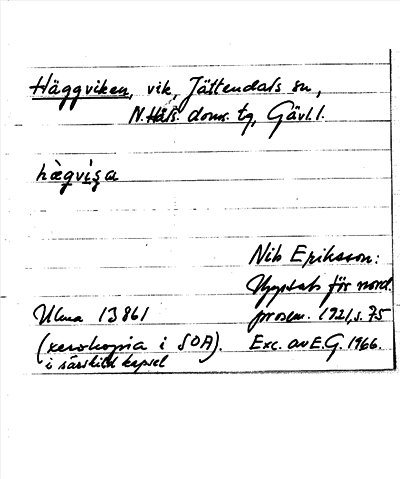 Häggviken, vik, Jättendals sn,
N. Häls. doms. tg, Gävl.l.
hægviʂa
Nils Eriksson:
Uppsats för nord.
prosem. 1921, s. 75
Ulma 13861
(xerokopia i SOA). Exc. av E.G. 1966.
i särskild kapsel